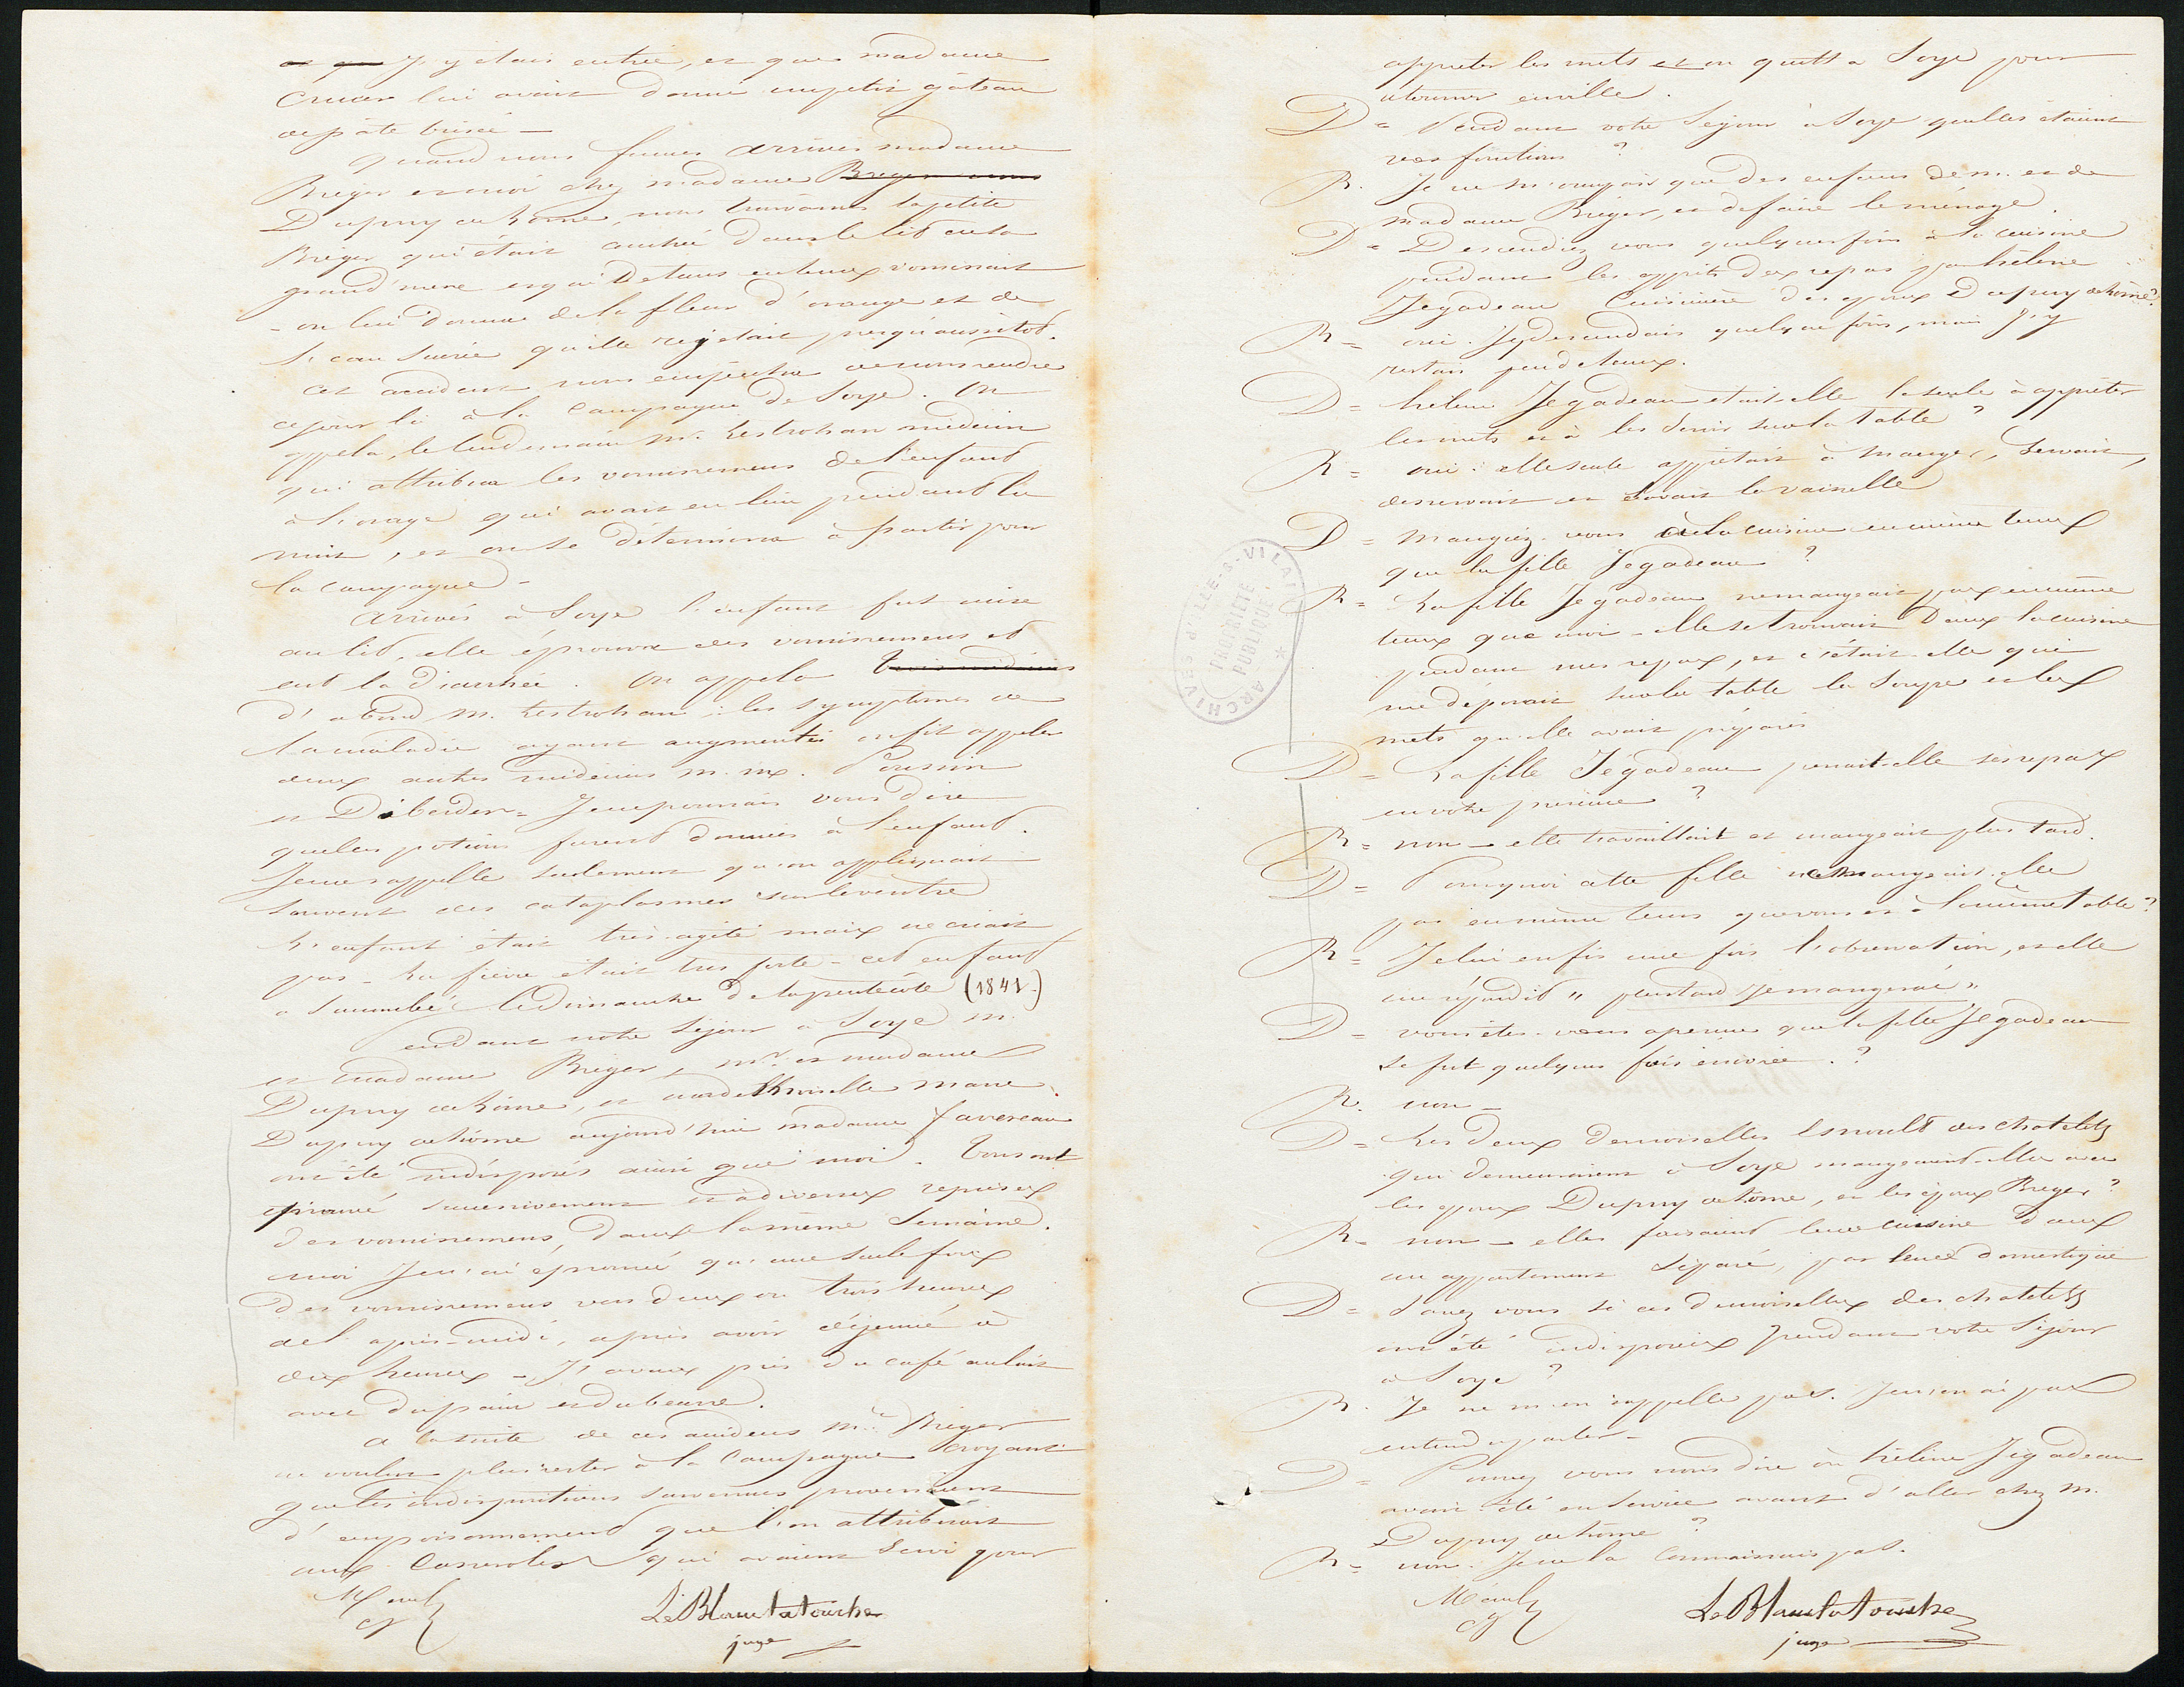 et que j'y étais entrée, et que madame
Cruser lui avait donné un petit gâteau
de pâte brisée —
Quand nous fumes arrivés madame
Breger et moi chez madame Breger nous
Dupuy de Lôme, nous trouvâmes la petite
Breger qui était couchée dans le lit de sa
grand'mère et qui de tems en tems vomissait
- on lui donna de la fleur d'orange et de
l'eau sucrée qu'elle rejetait presqu'aussitôt.
cet accident nous empêcha de nous rendre
ce jour là à la campagne de Soye. On
appela, le lendemain Mr. Lestrohan médecin
qui attribua les vomissemens de l'enfant
à l'orage qui avait eu lieu pendant la
nuit, et on se détermina à partir pour
la campagne -
Arrivés à Soye l'enfant fut mise
au lit, elle éprouva des vomissemens et
eut la diarrhée. On appela trois médecins
d'abord M. Lestrohan : les symptomes de
la maladie ayant augmenté on fit appeler
deux autres médecins M. M. Poussin
et Dibarder = Je ne pourrais vous dire
quelles potions furent données à l'enfant.
Je me rappelle seulement qu'on appliquait
souvent des cataplasmes sur le ventre
L'enfant était très agité mais ne criait
pas - La fièvre était très forte - cet enfant
a succombé le dimanche de la pentecôte (1841.)
Pendant notre séjour à Soye M.
et madame Breger, Mr. et madame
Dupuy de Lôme, et mademoiselle Marie
Dupuy de Lôme aujourd'hui madame favereau
ont été indisposés ainsi que moi. Tous ont
éprouvé successivement et à diverses reprises
des vomissemens, dans la même semaine.
moi je n'ai éprouvé qu'une seule fois
des vomissemens vers deux ou trois heures
de l'après-midi, après avoir déjeuné à
dix heures - J'avais pris du café au lait
avec du pain et du beurre.
A la suite de ces accidens Me. Breger
ne voulut plus rester à la campagne croyant
que les indispositions survenues provenaient
d'empoisonnement que l'on attribuait
aux casseroles qui avaient servi pour
Le Blanc Latouche
juge
apprêter les mets et on quitta Soye pour
retourner en ville.
D = Pendant votre séjour à Soye quelles étaient
vos fonctions ?
R. Je ne m'occupais que des enfans de M. et de
madame Breger, et de faire le ménage.
D = Descendiez vous quelques fois à la cuisine
pendant les apprêts des repas par hélène
Jegadeau cuisinière des époux Dupuy de Lôme ?
R = oui. J'y descendais quelque fois, mais j'y
restais peu de tems.
D = hélène Jegadeau était-elle la seule à apprêter
les mets et à les servir sur la table ?
R = oui : elle seule apprêtait à manger, servait,
desservait et lavait la vaisselle
D = mangiez-vous à la cuisine en même tems
que la fille Jegadeau ?
R = La fille Jegadeau ne mangeait pas en même
tems que moi - elle se trouvait dans la cuisine
pendant mes repas, et c'était elle qui
me déposait sur la table la soupe et les
mets qu'elle avait préparés
D = La fille Jégadeau prenait-elle ses repas
en votre présence ?
R = non - elle travaillait et mangeait plus tard.
D = Pourquoi cette fille ne mangeait-elle
pas en même tems que vous et à la même table ?
R = Je lui en fis une fois l'observation, et elle
me répondit " plus tard je mangerai "
D = vous êtes-vous aperçue que la fille Jegadeau
se fut quelques fois enivrée . ?
R. non -
D = Les deux demoiselles Esnoult des Chatelets
qui demeuraient à Soye mangeaient-elles avec
les époux Dupuy de Lôme, et les époux Breger ?
R = non - elles faisaient leur cuisine dans
un appartement séparé, par leur domestique
D = Savez vous si ces demoiselles des chatelets
ont été indisposées pendant votre séjour
à Soye ?
R. Je ne m'en rappelle pas. Je n'en ai pas
entendu parler -
D = Pouvez vous nous dire où hélène Jégadeau
avait été en service avant d'aller chez M.
Dupuy de Lôme ?
R = non. Je ne la connaissais pas.
Le Blanc Latouche
juge
ARCHIVES D'ILLE-&-VILAINE
PROPRIÉTÉ
PUBLIQUE